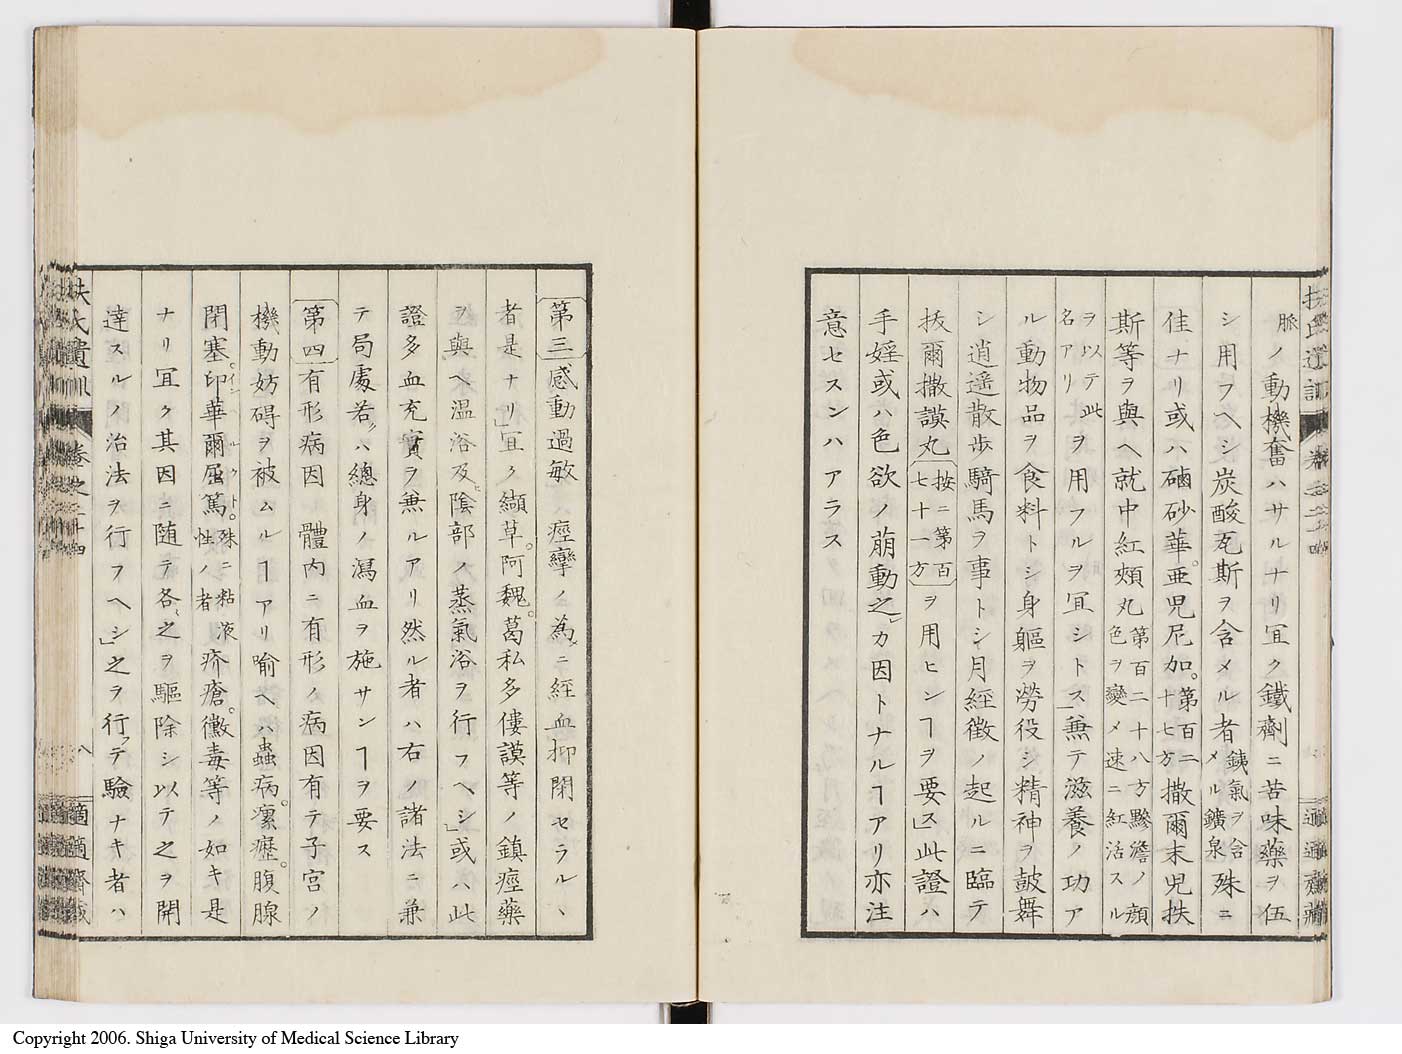 扶氏遺訓 卷之二十四 適適齋藏
脈ノ動機奮ハサルナリ冝ク鐵劑ニ苦味藥ヲ伍
シ用フヘシ炭酸瓦斯ヲ含メル者銕氣ヲ含メル鑛泉殊ニ
佳ナリ或ハ磠砂華亜児尼加第百二十七方撒爾末児扶
斯等ヲ與ヘ就中紅頰丸第百二十八方黲澹ノ顔色ヲ變メ速ニ紅活スル
ヲ以テ此名アリヲ用フルヲ冝シトス」兼テ滋養ノ功ア
ル動物品ヲ食料トシ身軀ヲ勞役シ精神ヲ鼓舞
シ逍遥散歩騎馬ヲ事トシ月經徴ノ起ルニ臨テ
抜爾撒謨丸按ニ第百七十一方ヲ用ヒンヿヲ要ス」此證ハ
手婬或ハ色欲ノ萠動之」カ因トナルヿアリ亦注
意セスンハアラス
第三感動過敏 痙攣ノ為ニ経血抑閉セラルヽ
者是ナリ」冝ク纈草。阿魏。葛私多僂謨等ノ鎮痙藥
ヲ與ヘ温浴及ヒ陰部ノ蒸氣浴ヲ行フヘシ」或ハ此
證多血充實ヲ兼ルアリ然ル者ハ右ノ諸法ニ兼
テ局處若クハ總身ノ瀉血ヲ施サンヿヲ要ス
第四有形病因 體内ニ有形ノ病因有テ子宮ノ
機動妨碍ヲ被ムルヿアリ喻ヘハ蟲病。瘰癧。腹腺
閉塞。印華爾屈篤。殊ニ粘液性ノ者疥瘡。黴毒等ノ如キ是
ナリ冝ク其因ニ随テ各〻之ヲ驅除シ以テ之ヲ開
達スルノ治法ヲ行フヘシ」之ヲ行テ驗ナキ者ハ
扶氏遺訓 卷之二十四 八 適適齋藏
Copyright 2006. Shiga University of Medical Science Library